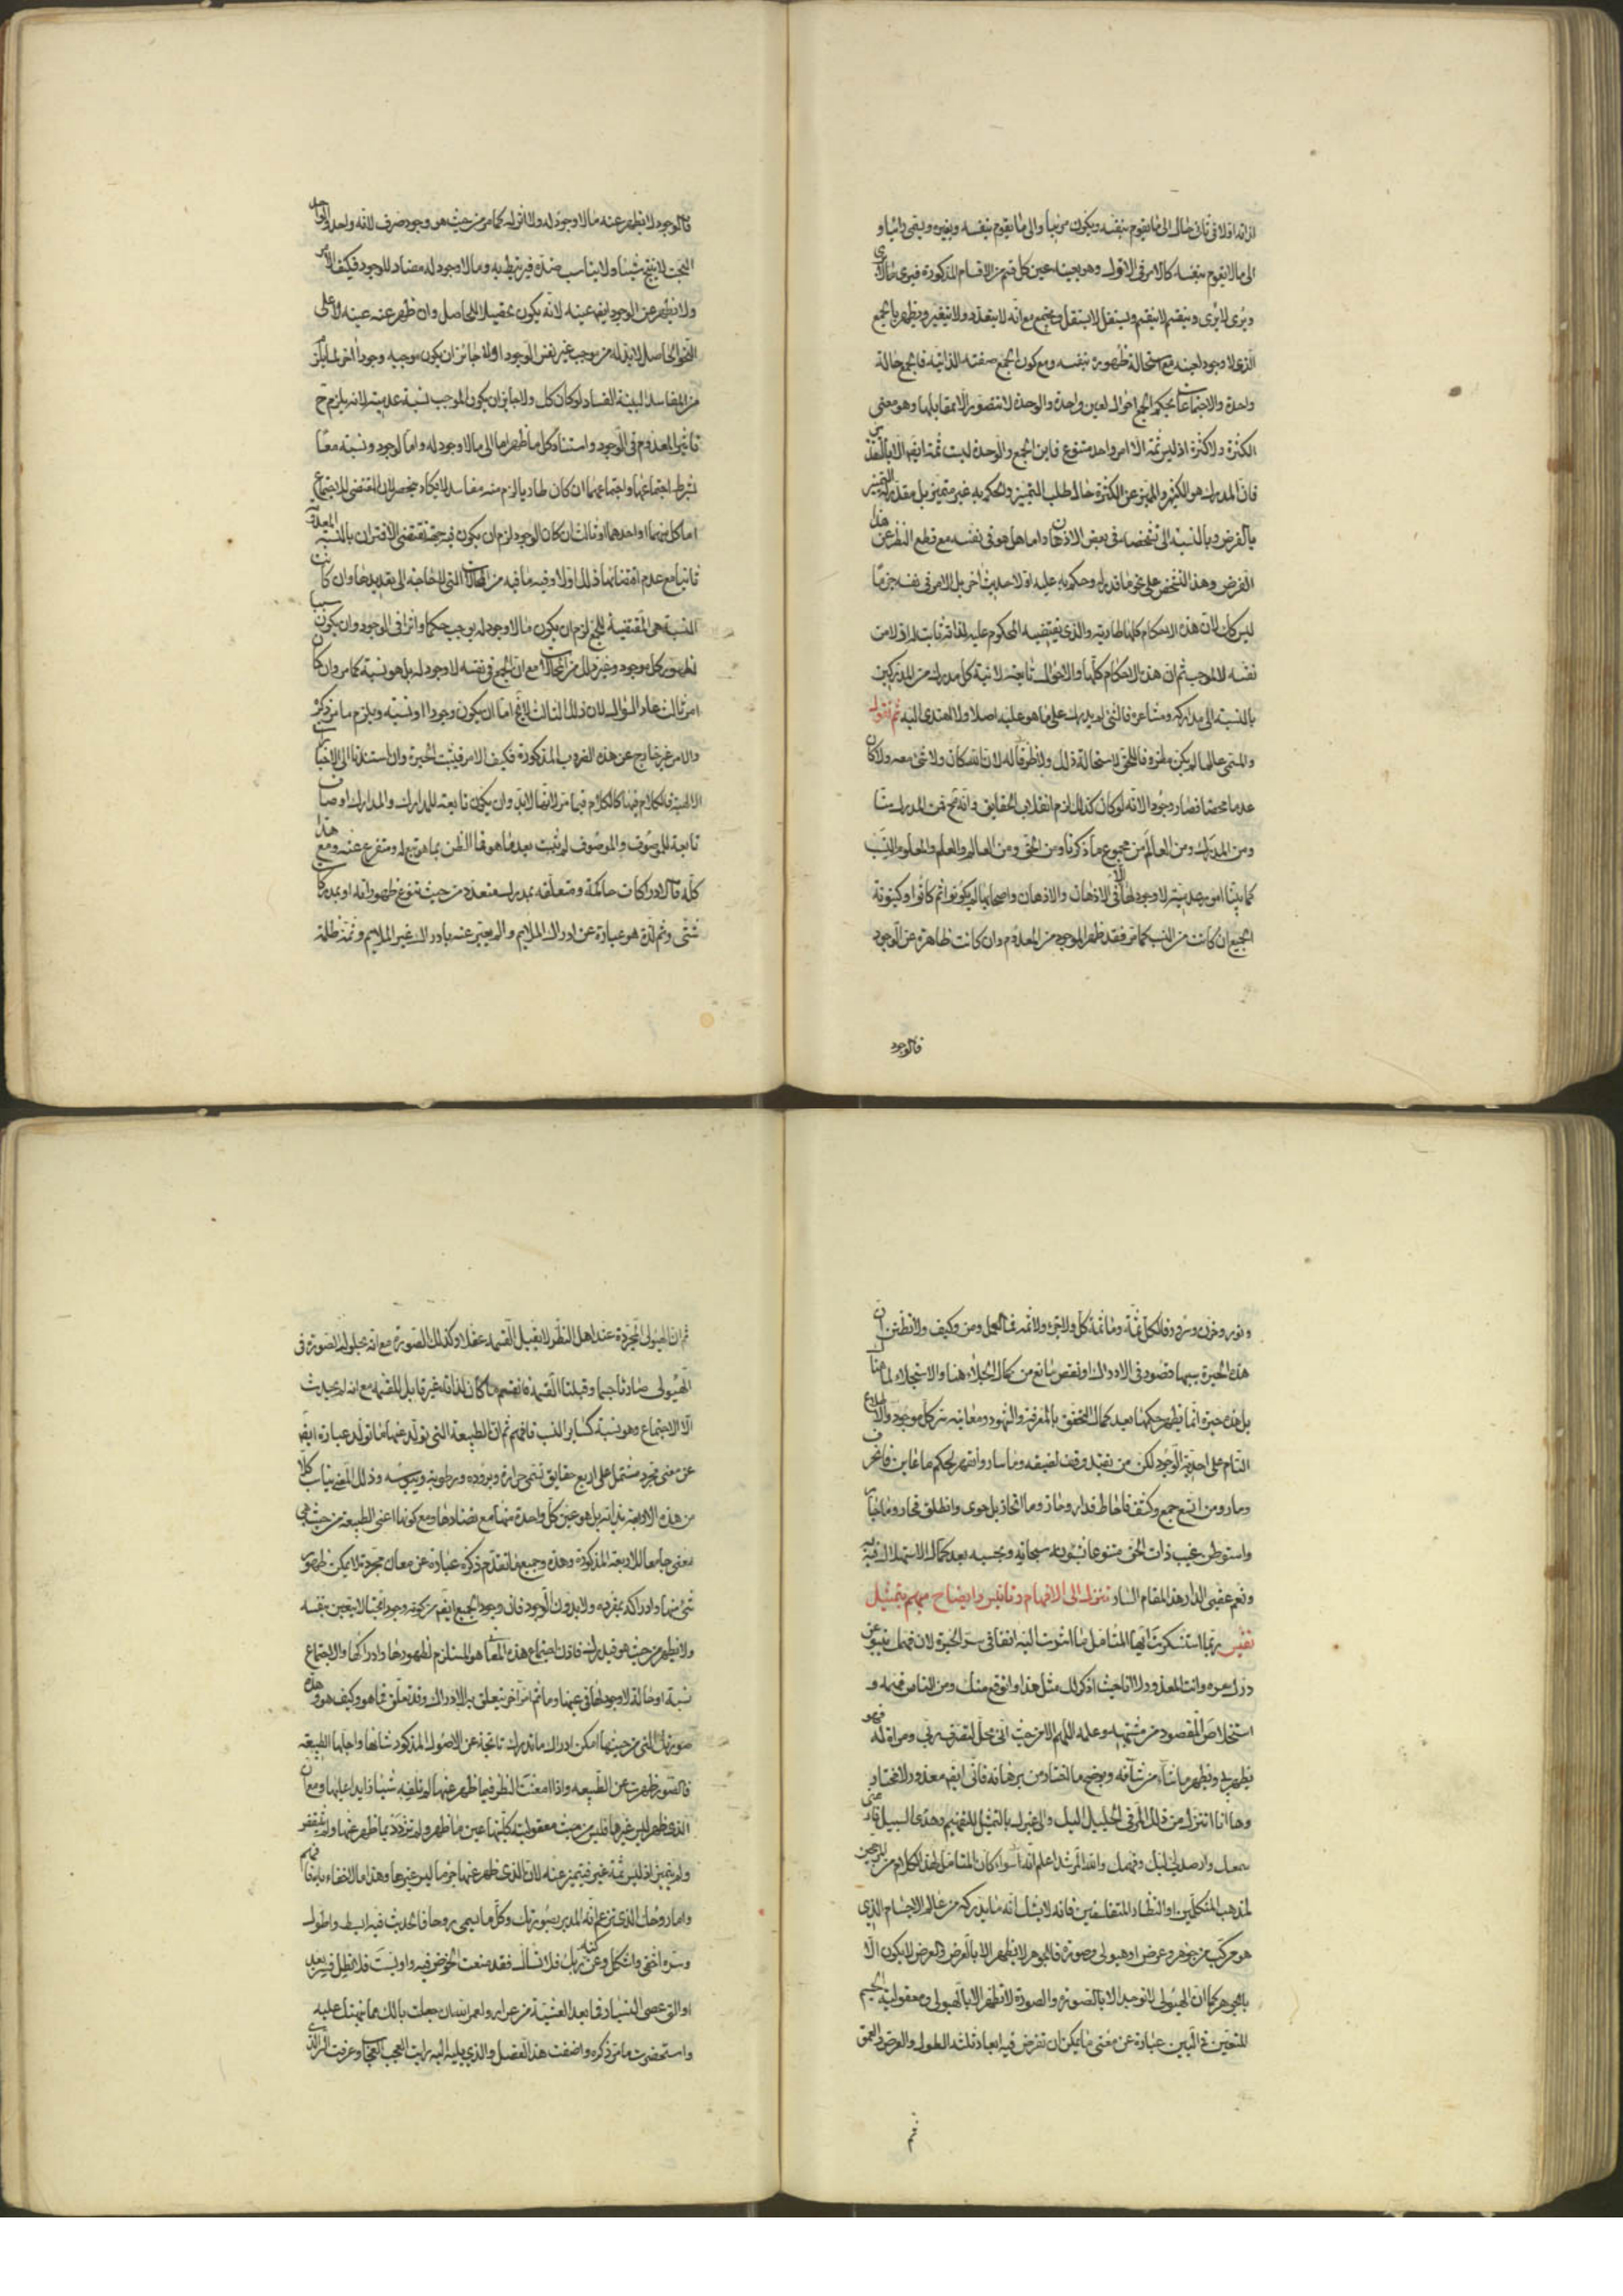 الى ما لا يقوم بنفسه كالامر فى الاول وهو بعينه عين كل قسم من الاقسام المذكورة فيرى
ويرى لا يرى وينقسم لا ينقسم ويستقل لا يستقل ويجتمع مع انه لا يتعدد ولا يتغير ويظهر بالجمع
الذى لا وجود لعينه مع استحالة ظهوره بنفسه ومع كون الجمع صفته الذاتية فالجمع حالة
واحدة والاجتماعات بحكم الجمع احوال لعين واحدة والوحدة لا تتصور الا بمقابلها وهو معنى
الكثرة ولا كثرة اذ ليس ثمة الا امر واحد متنوع فاين الجمع والوحدة ليست ثمة ايضا الا
فان المدرك هو الكثير والمميز عن الكثرة حال طلب التمييز والحكم به غير متميز بل مقدر له التميز
بالفرض وبالنسبة الى تشخصه فى بعض الاذهان واما هل هو فى نفسه مع قطع النظر عن هذا
الفرض وهذا التشخص على نحو ما قدر له وحكم به عليه او لا حديث آخر بل الامر فى نفسه جزما
ليس كذلك لان هذه الاحكام كلها طارية والذى يقتضيه المحكوم عليه لذاته ثابت له ازلا من
نفسه لا لموجب ثم ان هذه الاحكام كلها والاحوال تابعة لانية كل مدرك من المدركين
بالنسبة الى مداركه ومشاعره فالشى لم يدرك على ما هو عليه اصلا ولا اهتدى اليه ثم نقول
والمسمى عالما لم يكن مظهره فالحق لاستحالة ذلك ولا ظرفا له لان الله كان ولا شى معه ولا كان
عدما محضا فصار وجودا لانه لو كان كذلك لزم انقلاب الحقايق وانه مح فمن المدرك منا
ومن المدرك ومن العالم من مجموع ما ذكرنا ومن الحق ومن العالم والعلم والمعلوم والنسب
كما بينا امور عدمية لا وجود لها الا فى الاذهان والاذهان واصحابها لم يكونوا ثم كانوا وكينونة
الجميع ان كانت من النسب كما مر فقد ظهر الموجود من المعدوم وان كانت ظاهرة عن الوجود
فالوجود
فالوجود لا يظهر عنه ما لا وجود له ولا اثر له كما مر من حيث هو وجود صرف لانه واحد والواحد
البحت لا ينتج شيئا ولا يناسب ضده فيرتبط به وما لا وجود له مضاد للوجود فكيف الامر
ولا يظهر عن الوجود ايضا عينه لانه يكون تحصيلا للحاصل وان ظهر عنه عينه لا على
النحو الحاصل لا بد له من موجب غير نفس الوجود اولا جائز ان يكون موجبه وجودا آخر لما يلزم
من المفاسد البينة الفساد لو كان كذلك ولا جائز ان يكون الموجب نسبة عدمية لانه يلزم ح
تاثير المعدوم فى الوجود واستناد كل ما ظهر اما الى ما لا وجود له واما لوجود ونسبة معا
بشرط اجتماعهما واجتماعهما ان كان طاريا لزم منه مفاسد لا تكاد تنحصر لان المقتضى للاجتماع
اما كل منهما او احدهما او ثالث ان كان الوجود لزم ان يكون فيه جهة تقتضى الاقتران بالنسبة المعدومة
ثانيا مع عدم اقتضائها ذلك اولا وفيه ما فيه من المحالات التى لا حاجة الى تعديدها وان كانت
النسبة هى المقتضية للجمع لزم ان يكون ما لا وجود له يوجب حكما واثرا فى الوجود وان يكون سببا
لظهور كل موجود وغير ذلك من المحالات مع ان الجمع فى نفسه لا وجود له بل هو نسبة كما مر وان كان
امر ثالث عاد السؤال لان ذلك الثالث لا يخ اما ان يكون وجودا او نسبة ويلزم ما مر ذكره
والامر غير خارج عن هذه الضروب المذكورة فكيف الامر فثبت الحيرة وان استندنا الى الاخبارات
الالهية فالكلام فيها كالكلام فيما مر لانها لا بد وان يكون تابعة للمدارك والمدارك اوصاف
تابعة للموصوف والموصوف لم يثبت بعد ما هو فما الظن بما هو تبع له ومتفرع عنه ومع هذا
كله فالادراكات حاكمة ومتعلقه بمدرك متعدد من حيث تنوع ظهوراته او بمدركات
شتى وثم لذة هو عبارة عن ادراك الملايم والم يعبر عنه بادراك غير الملايم وثمة ظلمة
ونور وحزن وسرور فالكل ثمة وما ثمة كل ولا جزء ولا ثمة فما العمل ومن وكيف ولا تظنن ان
هذه الحيرة سببها قصور فى الادراك او نقص مانع من كمال الجلاء هنا والاستجلاء لما هناك
بل هذه حيرة انما يظهر حكمها بعد كمال التحقق بالمعرفة والشهود ومعاينة سر كل موجود والاطلاع
التام على احدية الوجود لكن من تقيد وقف لضيقه وما سار وانقهر لحكم ما عاين فانحرف
ومار ومن اتسع جمع وكشف فاحاط فدار وحاز وما انحاز بل جرى وانطلق فحار وما جار
واستوطن غيب ذات الحق متنوعا بشونه سبحانه وبحسبه بعد كمال الاستهلاك فيه به
ونعم عقبى الدار هذا المقام السار تنزل الى الافهام وتانيس وايضاح مبهم بتمثيل
نفيس ربما استنكرت ايها المتامل ما اشرت اليه انفا فى سر الحيرة لان فهمك ينبو عن
درك سره وانت المعذور ولا انا حيث اذكر لك مثل هذا واتوقع منك ومن الناس فهمه و
استخلاص المقصود من مشتبهه وعلمه اللهم الا من حيث انى محل لتصرف ربى ومراة له فهو
يظهر بى ويظهر ما شاء من شانه ويوضح ما اختار من برهانه فانى ايضا معذور لا مختار
وها انا اتنزل من ذلك المرقى الجليل اليك والى غيرك بالتمثيل للتفهيم وهدى السبيل
سمعك وارصد لبك وفهمك والله المرشد اعلم انه سواء كان المتامل لهذا الكلام من المرجحين
لمذهب المتكلمين او النظار المتفلسفين فانه لا يشك انه ما يدركه من عالم الاجسام الذى
هو مركب من جوهر وعرض او هيولى وصورة فالجوهر لا يظهر الا بالعرض والعرض لا يكون الا
بالجوهر كما ان الهيولى لا توجد الا بالصورة والصورة لا تظهر الا بالهيولى ومعقولية الجسم
المتعين فى البين عبارة عن معنى ما يمكن ان تفرض فيه ابعاد ثلثة الطول والعرض والعمق
ثم
ثم ان الهيولى المجردة عند اهل النظر لا يقبل القسمة عقلا وكذلك الصورة مع انه بحلول الصورة فى
الهيولى صارتا جسما وقبلتا القسمة فانقسم ما كان لذاته غير قابل للقسمة مع انه لم يحدث
الا الاجتماع وهو نسبة كسائر النسب فافهم ثم ان الطبيعة التى تولد عنها ما تولد عبارة ايضا
عن معنى مجرد مشتمل على اربع حقايق تسمى حرارة وبرودة ورطوبة ويبوسة وذلك المعنى يناسب كلا
من هذه الاربعة بذاته بل هو عين كل واحدة منها مع تضادها ومع كونها اعنى الطبيعة من حيث هى
معنى جامعا للاربعة المذكورة وهذه وجميع ما تقدم ذكره عبارة عن معان مجردة لا يمكن ظهور
شى منها وادراكه بمفرده ولا بدون الوجود فان وجود الجميع ايضا من كونه وجودا بحتا لا يتعين بنفسه
ولا يظهر من حيث هو فيدرك فاذن اجتماع هذه المعانى هو المستلزم لظهورها وادراكها والاجتماع
نسبة او حالة لا وجود لها فى عينها وما ثم امر آخر يتعلق به الادراك وقد تعلق فما هو وكيف هو وهذه
صورتك التى من حيثها امكن ادراك ما تدرك ناتجة عن الاصول المذكور شانها واجلها الطبيعة
فالصور ظهرت عن الطبيعه واذا امعنت النظر فيما ظهر عنها لم تلفه شيئا زايدا عليها ومع ان
الذى ظهر ليس غيرها فليس من حيث معقولية كليتها عين ما ظهر ولم تزدد بما ظهر عنها ولم تنقص
ولم يتميز اذ ليس ثمة غير فيتميز عنه لان الذى ظهر عنها جزء ما ليس غيرها وهذا ما لا خفاء به فافهم
واما روحك الذى تزعم انه المدبر بصورتك وكل ما يسمى روحا فالحديث فيه ابسط واطول
وسره اخفى واشكل وعن كنه ربك فلا تسال فقد منعت الخوض فيه واويست فلا تطل فليس بعد
اوالق عصى التسيار فما بعد العشية من عرار ولعمر الله ان جعلت بالك مما نبهتك عليه
واستحضرت ما مر ذكره واضفت هذا الفصل والذى يليه اليه رايت العجب العجاب وعرفت السر الذى